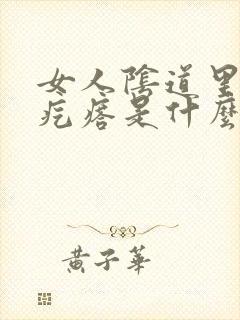 女人陰道里
疙瘩是什麼
黃子華